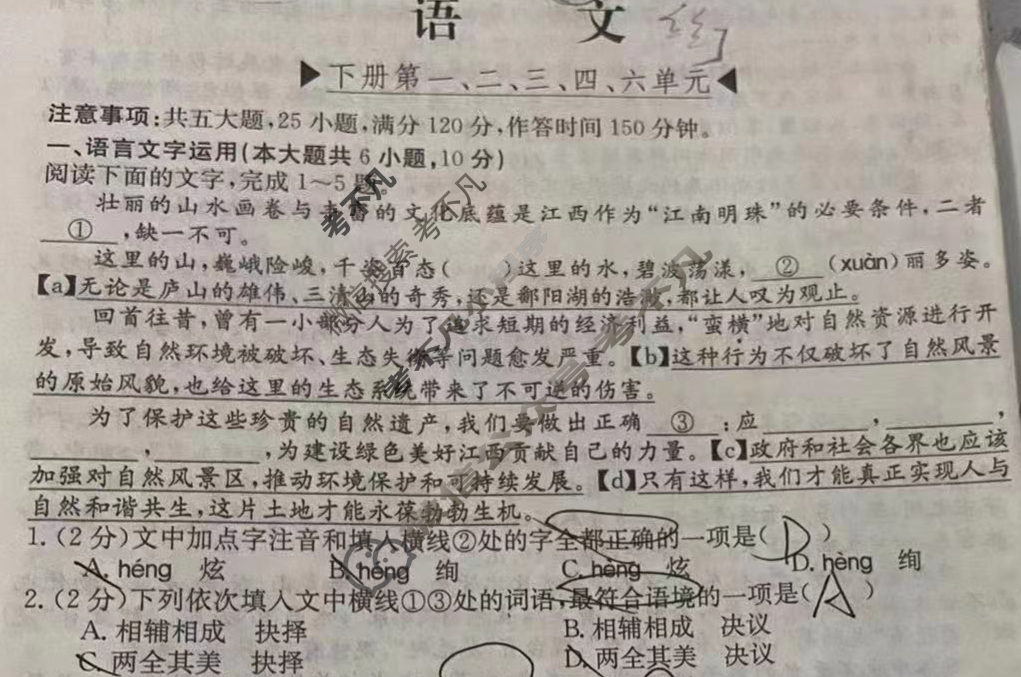 语 文
▶下册第一、二、三、四、六单元◀
注意事项:共五大题,25小题,满分120分,作答时间150分钟。
一、语言文字运用(本大题共6小题,10分)
阅读下面的文字,完成1~5题。
壮丽的山水画卷与丰富的文化底蕴是江西作为“江南明珠”的必要条件,二者
①,缺一不可。
这里的山,巍峨险峻,千姿百态( )这里的水,碧波荡漾, ② (xuàn)丽多姿。
【a】无论是庐山的雄伟、三清山的奇秀,还是鄱阳湖的浩渺,都让人叹为观止。
回首往昔,曾有一小部分人为了追求短期的经济利益,“蛮横”地对自然资源进行开
发,导致自然环境被破坏、生态失衡等问题愈发严重。【b】这种行为不仅破坏了自然风景
的原始风貌,也给这里的生态系统带来了不可逆的伤害。
为了保护这些珍贵的自然遗产,我们要做出正确 ③ :应________,________,
________,________,为建设绿色美好江西贡献自己的力量。【c】政府和社会各界也应该
加强对自然风景区,推动环境保护和可持续发展。【d】只有这样,我们才能真正实现人与
自然和谐共生,这片土地才能永葆勃勃生机。
1.(2分)文中加点字注音和填入横线②处的字全都正确的一项是( D )
A. héng 炫 B. hèng 绚 C. hèng 炫 D. hèng 绚
2.(2分)下列依次填入文中横线①③处的词语,最符合语境的一项是( A )
A. 相辅相成 抉择 B. 相辅相成 决议
C. 两全其美 抉择 D. 两全其美 决议